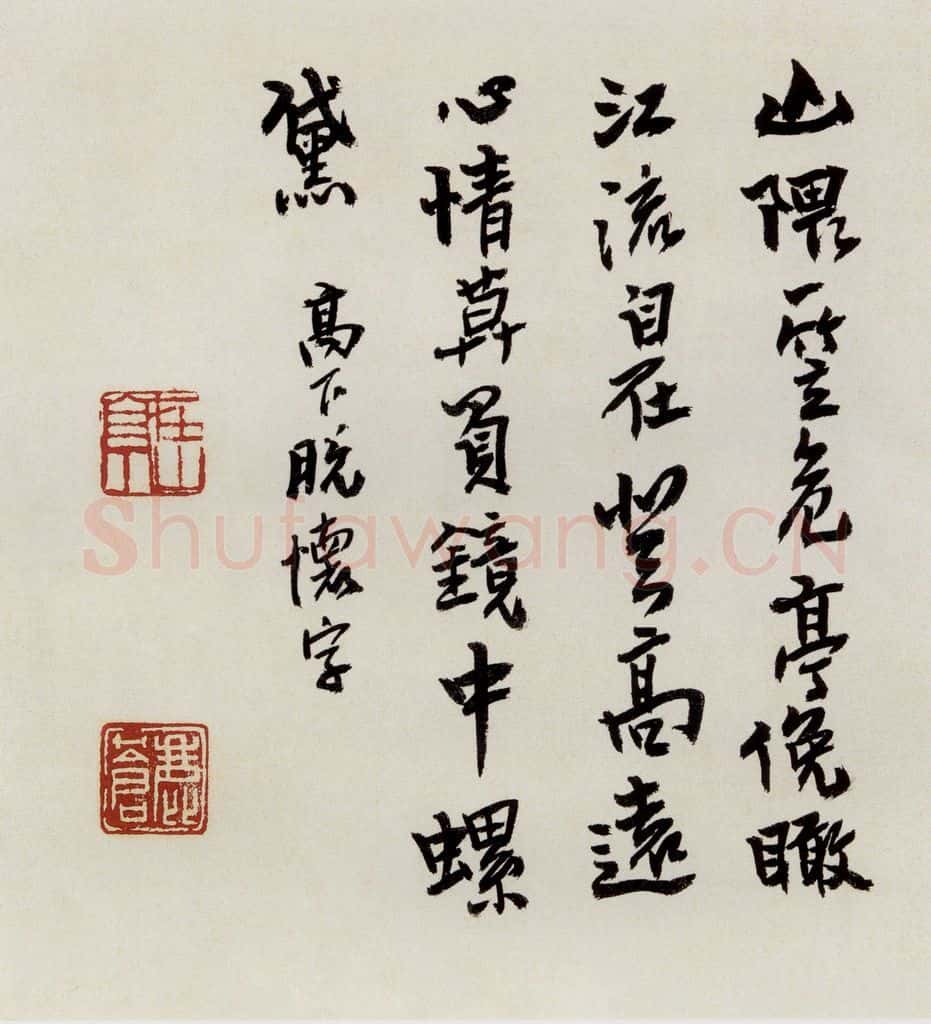 山隈一笠危亭俛瞰
江流自在登高遠
心情莫負鏡中螺
黛 高下脫懷字
Shufawang.CN